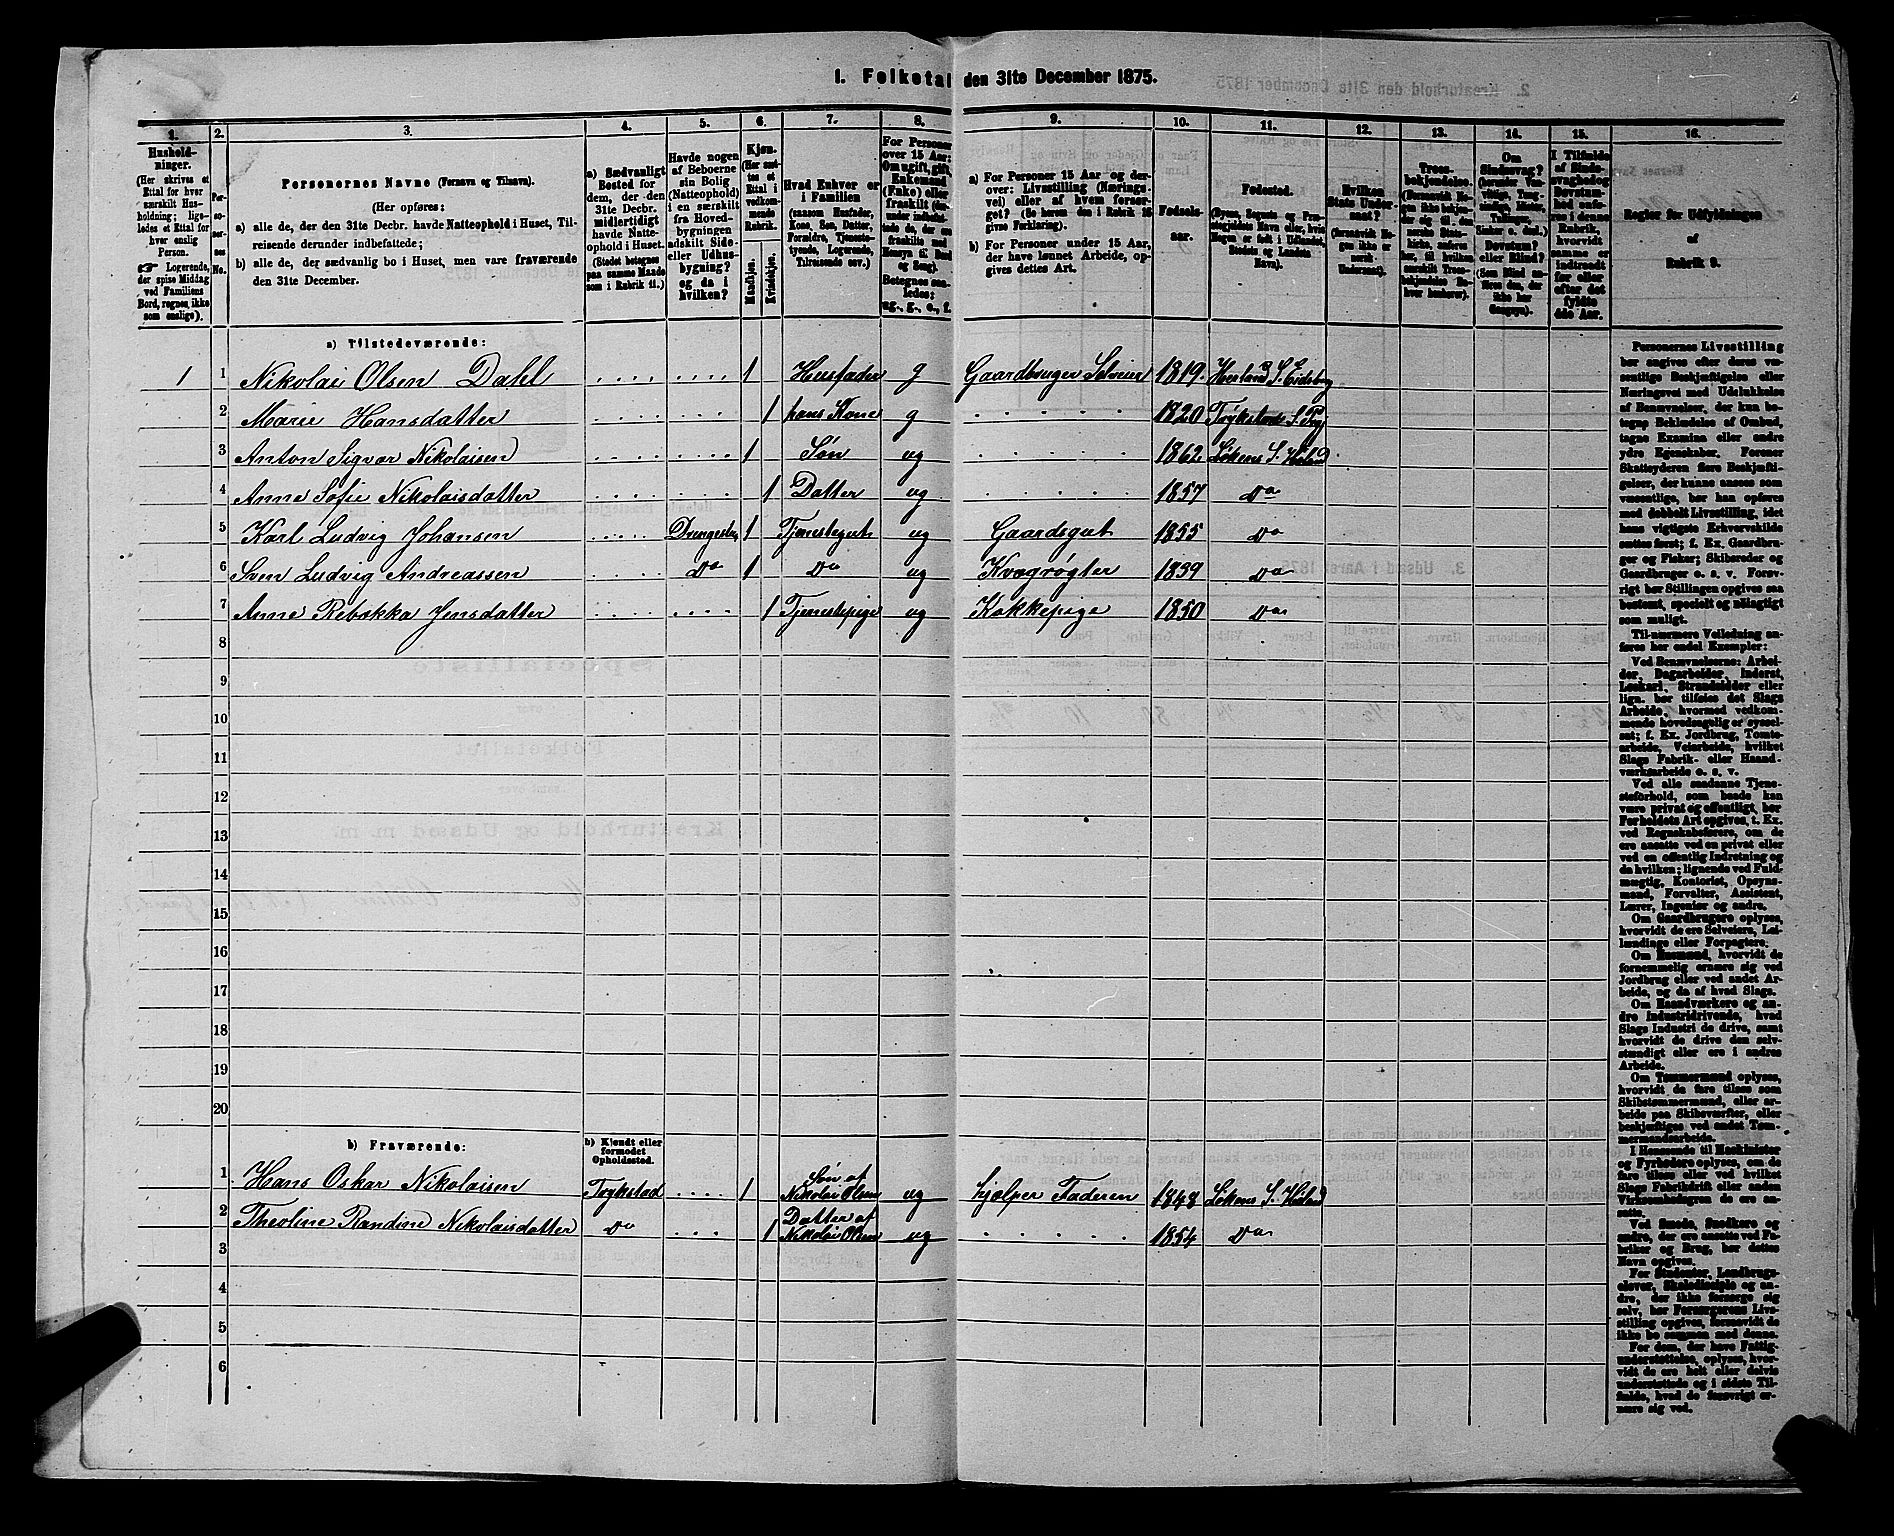 1. Folketal den 31te December 1875.
1. 2. 3. 4. 5. 6. 7. 8. 9. 10. 11. 12. 13. 14. 15. 16.
Hushold-
ninger.
(Her skrives et
Ettal for hver
særskilt Hus-
holdning; lige-
ledes et Ettal for
hver enslig
Person.
☞ Logerende,
der spise Middag
ved Familiens
Bord, regnes ikke
som enslige).
Per-
so-
ner-
nes
No.
Personernes Navne (Fornavn og Tilnavn).
(Her opføres:)
a) alle de, der den 31te Decbr. havde Natteophold i Huset, Til-
reisende derunder indbefattede;
b) alle de, der sædvanlig bo i Huset, men vare fraværende
den 31te December.
a) Sædvanligt
Bosted for
dem, der den
31te Decbr.
midlertidigt
havde Natte-
ophold i Huset.
(Stedet betegnes
paa samme Maade
som i Rubrik 11.)
Havde nogen
af Beboerne
sin Bolig
(Natteophold)
i en særskilt
fra Hoved-
bygningen
adskilt Side-
eller Udhus-
bygning?
og da i
hvilken?
Kjøn.
(Her sæt-
tes et
Ettal i
vedkom-
mende
Rubrik.
Mandkjøn.
Kvindekjøn.
Hvad Enhver er
i Familien
(saasom Husfader,
Kone, Søn, Datter,
Forældre, Tjeneste-
tyende, Logerende,
Tilreisende osv.)
For Personer
over 15 Aar:
Om ugift, gift,
Enkemand
(Enke) eller
fraskilt
Betegnes saa-
ledes:
ug., g., e., f.
a) For Personer 15 Aar og der-
over: Livsstilling (Nærings-
vei) eller af hvem forsør-
get? (Se hosren den i Rubrik 16
givne Forklaring).
b) For Personer under 15 Aar,
der have lønnet Arbeide, op-
gives dettes Art.
Fødsels-
aar.
Fødested.
(Byens, Sognets og Præ-
stegjeldets Navn eller, hvis
Nogen er født i Udlandet,
Stedets og Landets
Navn).
Hvilken
Stats Under-
saat?
Troes-
bekjendelse.
Om
Sindssvag?
Døvstum?
eller Blind?
Regler for Udfyldningen
af
Rubrik 9.
a) Tilstedeværende:
1 1 Nikolai Olsen Dahl 1 Husfader g Gaardbruger Selveier 1819 Herland S. Eidsberg
2 Marie Hansdatter 1 hans Kone g 1820 Trykstad S. Try
3 Anton Sigvar Nikolaisen 1 Søn ug 1862 Løkens S. Høland
4 Anne Sofie Nikolaisdatter 1 Datter ug 1857 Do
5 Karl Ludvig Johansen Drengestu 1 Tjenestegut ug Gaardsgut 1855 Do
6 Sven Ludvig Andreassen Do 1 Do ug Kvægrøgter 1839 Do
7 Anne Rebekka Jensdatter 1 Tjenestepige ug Kokkepige 1850 Do
8
9
10
11
12
13
14
15
16
17
18
19
20
b) Fraværende:
b) Kjendt eller
formodet
Opholdssted.
1 Hans Oskar Nikolaisen Trykstad 1 Søn af Nikolai Olsen ug hjælper Faderen 1848 Løkens S. Høland
2 Theoline Randine Nikolaisdatter Do 1 Datter af Nikolai Olsen ug 1854 Do
3
4
5
6
Personernes Livsstilling
bør angives efter deres væ-
sentlige Beskjæftigelse eller
Næringsvei med Udelukkelse
af Benævnelser, der kun be-
tegne Beklædelse af Ombud,
tagne Examina eller andre
ydre Egenskaber. Forener
Skatteyderen flere Beskjæfti-
gelser, der kunne ansees som
væsentlige, bør han opføres
med dobbelt Livsstilling, idet
hans vigtigste Erhvervskilde
sættes først; f. Ex. Gaardbru-
ger og Fisker; Skibsreder og
Gaardbruger o. s. v. Forøv-
rigt bør Stillingen opgives saa
bestemt, specielt og nøiagtigt
som muligt.
Til nærmere Veiledning an-
føres her endel Exempler:
Ved Benævnelserne: Arbei-
der, Dagarbeider, Inderst,
Løskarl, Strandsidder eller
lign. bør tilføies det Slags
Arbeide, hvormed vedkom-
mende hovedsagelig er syssel-
sat; f. Ex. Jordbrug, Tomte-
arbeide, Veiarbeide, hvilket
Slags Fabrik- eller Haand-
værksarbeide o. s. v.
Ved alle saadanne Tjene-
steforhold, som baade kan
være privat og offentligt, bør
Forholdets Art opgives, t. Ex.
ved Regnskabsførere, om de
ere ansatte ved en privat eller
ved en offentlig Indretning og
da hvilken; lignende ved Fuld-
mægtig, Kontorist, Opsyns-
mand, Forvalter, Assistent,
Lærer, Ingeniør og andre.
Om Gaardbrugere oplyses,
hvorvidt de ere Selveiere, Lei-
lændinge eller Forpagtere.
Om Husmænd, hvorvidt de
fornemmelig ernære sig ved
Jordbrug eller ved andet Ar-
beide, og da af hvad Slags.
Om Haandværkere og an-
dre Industridrivende, hvad
Slags Industri de drive, samt
hvorvidt de drive den selv-
stændigt eller ere i andres
Arbeide.
Om Tømmermænd oplyses,
hvorvidt de fare tilsøs som
Skibstømmermænd, eller ar-
beide paa Skibsværfter, eller
beskjæftiges ved andet Tøm-
mermandsarbeide.
I Henseende til Maskinister
og Fyrbødere oplyses, om de
fare tilsøs eller ved hvilket
Slags Fabrikdrift eller anden
Virksomhed de ere an-
satte.
Ved Smede, Snedkere og
andre, der ere ansatte ved Fa-
briker og Brug, bør dettes
Navn opgives.
For Studenter, Landbrugs-
elever, Skoledisciple og an-
dre, der ikke forsørge sig
selv, bør Forsørgerens Livs-
stilling opgives, forsaavidt de
ikke bo sammen med denne.
For dem, der have Fattig-
understøttelse, oplyses, hvor-
vidt de ere helt eller delvis
understøttede og i sidste Til-
fælde, hvad de forøvrigt er-
nære sig ved.